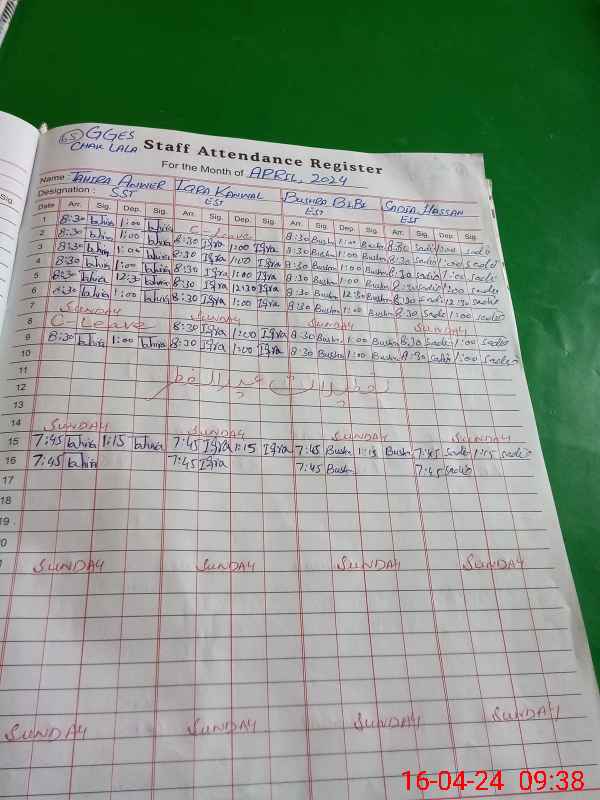 65 GGES
CHAK LALA
Staff Attendance Register
For the Month of APRIL, 2024
Name : TAHIRA ANWER IQRA KANWAL BUSHRA BIBI SADIA HASSAN
Designation : SST EST EST
Date Arr. Sig. Dep. Sig. Arr. Sig. Dep. Sig. Arr. Sig. Dep. Sig. Arr. Sig. Dep. Sig.
1 8:30 tahira 1:00 tahira C-Leave 8:30 Bushra 1:00 Bushra 8:30 Sadia 1:00 Sadia
2 8:30 tahira 1:00 tahira 8:30 Iqra 1:00 Iqra 8:30 Bushra 1:00 Bushra 8:30 Sadia 1:00 Sadia
3 8:30 tahira 1:00 tahira 8:30 Iqra 1:00 Iqra 8:30 Bushra 1:00 Bushra 8:30 Sadia 1:00 Sadia
4 8:30 tahira 1:00 tahira 8:30 Iqra 1:00 Iqra 8:30 Bushra 1:00 Bushra 8:30 Sadia 1:00 Sadia
5 8:30 tahira 12:30 tahira 8:30 Iqra 12:30 Iqra 8:30 Bushra 12:30 Bushra 8:30 Sadia 12:30 Sadia
6 8:30 tahira 1:00 tahira 8:30 Iqra 1:00 Iqra 8:30 Bushra 1:00 Bushra 8:30 Sadia 1:00 Sadia
7 SUNDAY SUNDAY SUNDAY SUNDAY
8 C-Leave 8:30 Iqra 1:00 Iqra 8:30 Bushra 1:00 Bushra 8:30 Sadia 1:00 Sadia
9 8:30 tahira 1:00 tahira 8:30 Iqra 1:00 Iqra 8:30 Bushra 1:00 Bushra 8:30 Sadia 1:00 Sadia
10
11
12 تعطیلات عیدالفطر
13
14 SUNDAY SUNDAY SUNDAY SUNDAY
15 7:45 tahira 1:15 tahira 7:45 Iqra 1:15 Iqra 7:45 Bushra 1:15 Bushra 7:45 Sadia 1:15 Sadia
16 7:45 tahira 7:45 Iqra 7:45 Bushra 7:45 Sadia
17
18
19
SUNDAY SUNDAY SUNDAY SUNDAY
SUNDAY SUNDAY SUNDAY SUNDAY
16-04-24 09:38